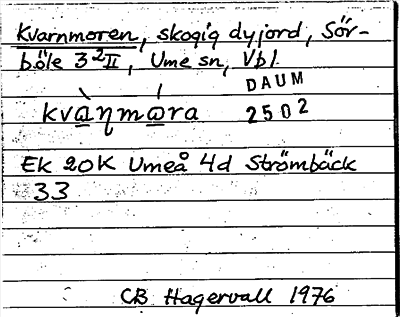 Kvarnmoren, skogig dyjord, Sör-
böle 3²II, Ume sn, Vbl.
DAUM
2502
kvàŋmóra
Ek 20K Umeå 4d Strömbäck
33
CB Hagervall 1976